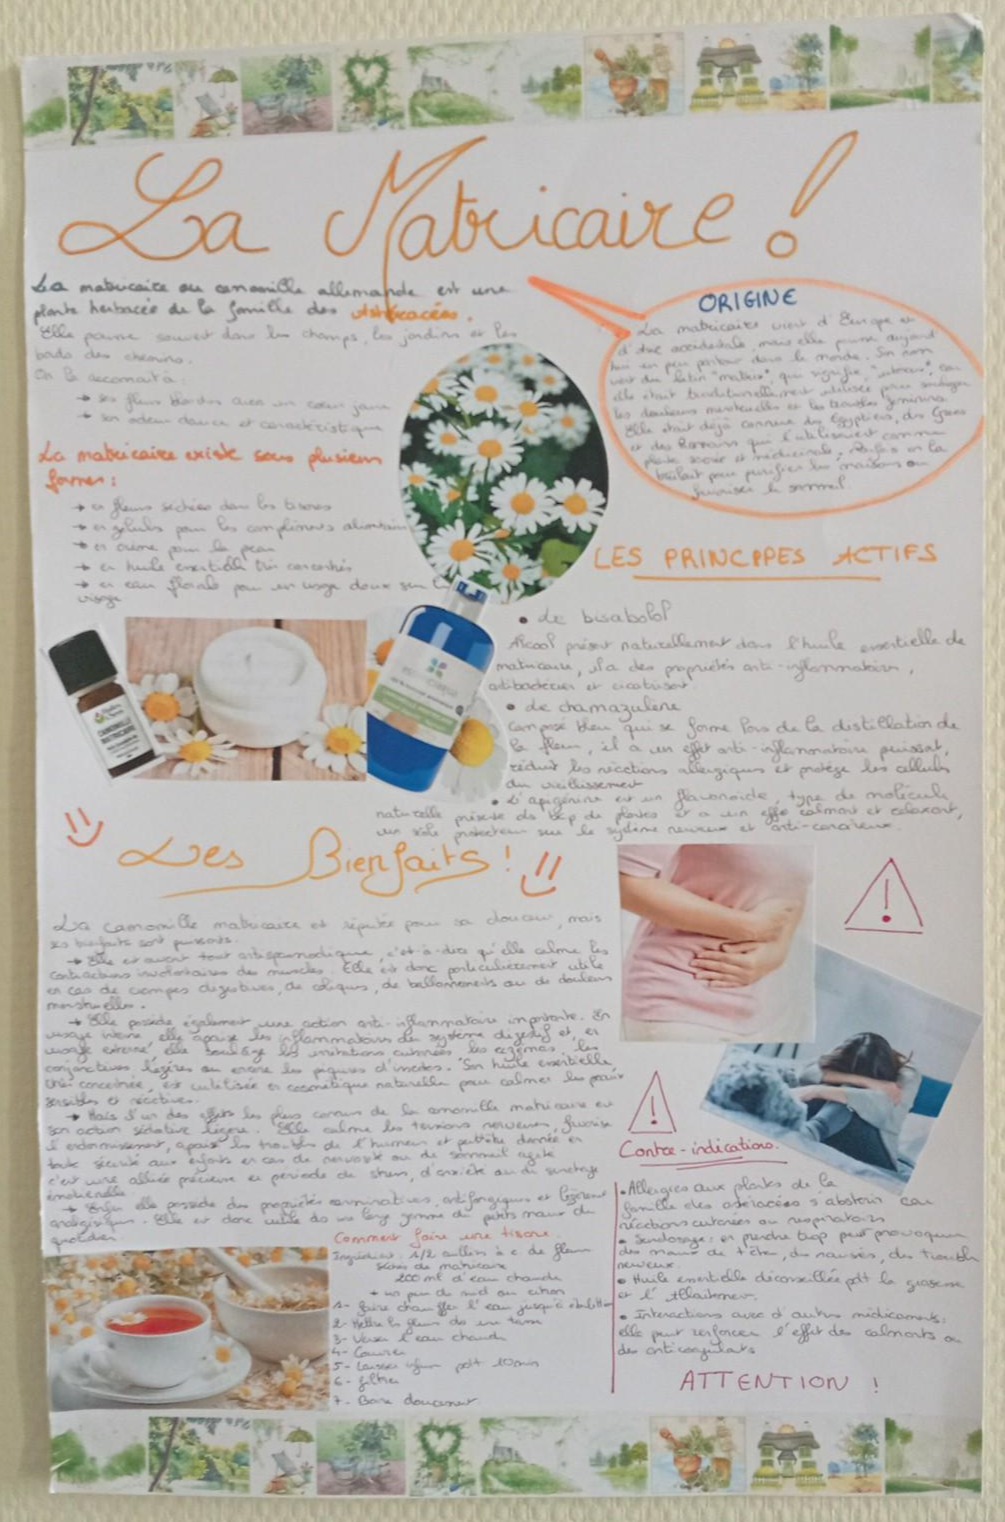 La Matricaire !
La matricaire ou camomille allemande est une
plante herbacée de la famille des Astéracées.
Elle pousse souvent dans les champs, les jardins et les
bords des chemins.
On la reconnait à :
→ ses fleurs blanches avec un coeur jaune
→ son odeur douce et caractéristique
ORIGINE
La matricaire vient d'Europe et
d'Asie occidentale mais elle pousse aujourd'
hui un peu partout dans le monde. Son nom
vient du latin "matrix", qui signifie "utérus", car
elle était traditionnellement utilisée pour soulager
les douleurs menstruelles et les troubles féminins.
Elle était déjà connue des Égyptiens, des Grecs
et des Romains qui l'utilisaient comme
plante sacrée et médicinale. Parfois on la
brûlait pour purifier les maisons ou
favoriser le sommeil.
La matricaire existe sous plusieurs
formes :
→ en fleurs séchées dans les tisanes
→ en gélules pour les compléments alimentaires
→ en crème pour la peau
→ en huile essentielle très concentrée
→ en eau florale pour un usage doux sur le
visage
CAMOMILLE
MATRICAIRE
LES PRINCIPES ACTIFS
• de bisabolol
Alcool présent naturellement dans l'huile essentielle de
matricaire, il a des propriétés anti-inflammatoires,
antibactérien et cicatrisant.
• de chamazulène
Composé bleu qui se forme lors de la distillation de
la fleur, il a un effet anti-inflammatoire puissant,
réduit les réactions allergiques et protège les cellules
du vieillissement
• L'apigénine est un flavonoïde, type de molécule
naturelle présente ds bcp de plantes et a un effet calmant et relaxant,
un rôle protecteur sur le système nerveux et anti-cancéreux.
Les Bienfaits !
La camomille matricaire est réputée pour sa douceur, mais
ses bienfaits sont puissants.
→ Elle est avant tout antispasmodique, c'est-à-dire qu'elle calme les
contractions involontaires des muscles. Elle est donc particulièrement utile
en cas de crampes digestives, de coliques, de ballonnements ou de douleurs
menstruelles.
→ Elle possède également une action anti-inflammatoire importante. En
usage interne, elle apaise les inflammations du système digestif et, en
usage externe, elle soulage les irritations cutanées, les eczémas, les
conjonctivites légères ou encore les piqûres d'insectes. Son huile essentielle
très concentrée, est utilisée en cosmétique naturelle pour calmer les peaux
sensibles et réactives.
→ Mais l'un des effets les plus connus de la camomille matricaire est
son action sédative légère. Elle calme les tensions nerveuses, favorise
l'endormissement, apaise les troubles de l'humeur et peut être donnée en
toute sécurité aux enfants en cas de nervosité ou de sommeil agité
c'est une alliée précieuse en période de stress, d'anxiété ou de surcharge
émotionnelle.
→ Enfin elle possède des propriétés carminatives, antifongiques et légèrement
analgésiques. Elle est donc utile ds une large gamme de petits maux du
quotidien.
Comment faire une tisane
Ingrédients : 1/2 cuillère à c. de fleurs
séchées de matricaire
200 ml d'eau chaude
+ un peu de miel ou citron
1- Faire chauffer l'eau jusqu'à ébullition
2- Mettre les fleurs ds une tasse
3- Verser l'eau chaude
4- Couvrir
5- Laisser infuser pdt 10min
6- filtrer
7- Boire doucement
Contre-indications.
• Allergies aux plantes de la
famille des astéracées s'abstenir car
réactions cutanées ou respiratoires
• Surdosage : en prendre trop peut provoquer
des maux de tête, des nausées, des troubles
nerveux.
• Huile essentielle déconseillée pdt la grossesse
et l'allaitement.
• Interactions avec d'autres médicaments :
elle peut renforcer l'effet des calmants ou
des anticoagulants
ATTENTION !